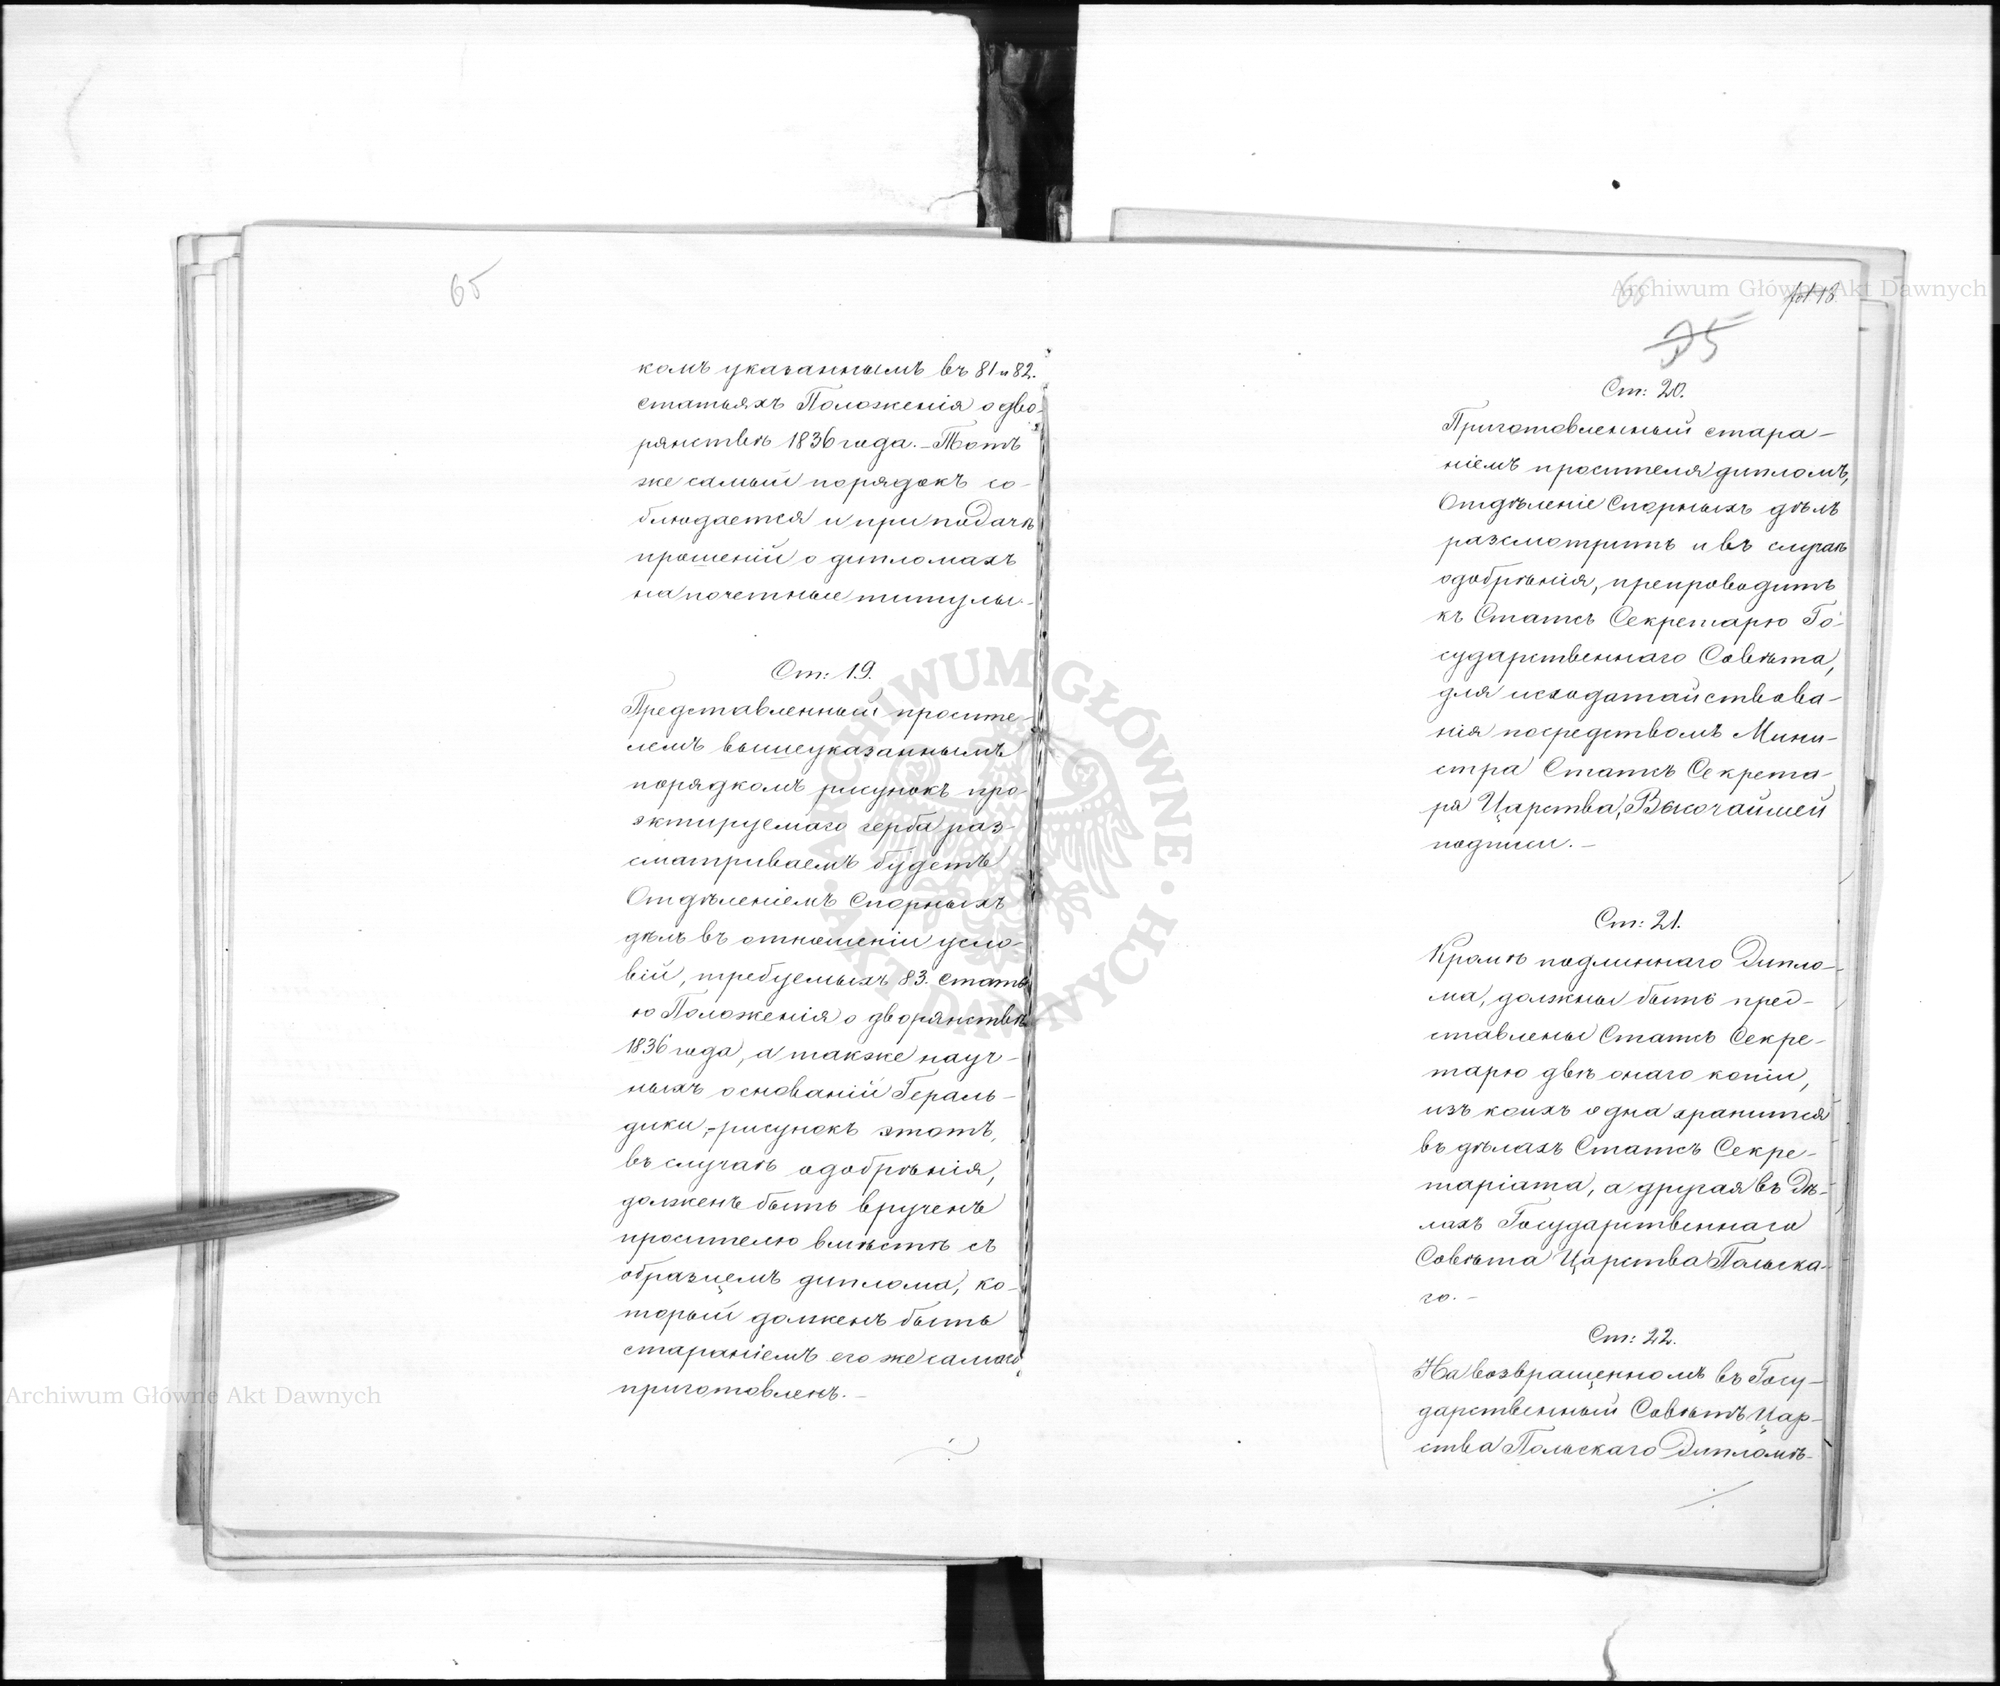 65
комъ указаннымъ въ 81 и 82.
статьяхъ Положенія о дво-
рянствѣ 1836 года. – Тотъ
же самый порядокъ со-
блюдается и при подачѣ
прошеній о дипломахъ
на почетные титулы. –
Ст: 19.
Представленный проси­те-
лемъ вышеуказаннымъ
порядкомъ рисунокъ про-
эктируемаго герба раз-
сматриваемъ будетъ
Отдѣленіемъ Спорныхъ
дѣлъ въ отношеніи усло-
вій, требуемыхъ 83. стать-
ю Положенія о дворянствѣ
1836 года, а также науч-
ныхъ основаній Гераль-
дики, – рисунокъ этотъ,
въ случаѣ одобрѣнія,
долженъ быть врученъ
просителю вмѣстѣ съ
образцемъ диплома, ко-
торый долженъ быть
стараніемъ его же самаго
приготовленъ. –
Ст: 20.
Приготовленный стара-
ніемъ просителя дипломъ,
Отдѣленіе Спорныхъ дѣлъ
разсмотритъ и въ случаѣ
одобрѣнія, препроводитъ
къ Статсъ Секретарю Го-
сударственнаго Совѣта,
для исходатайствова-
нія посредствомъ Мини-
стра Статсъ Секрета-
ря Царства, Высочайшей
подписи. –
Ст: 21.
Кромѣ подлиннаго Дипло-
ма, должны быть пред-
ставлены Статсъ Секре-
тарю двѣ онаго копіи,
изъ коихъ одна хранится
въ дѣлахъ Статсъ Секре-
таріата, а другая въ Дѣ-
лахъ Государственнаго
Совѣта Царства Польска-
го. –
Ст: 22.
На возвращенномъ въ Госу-
дарственный Совѣтъ Цар-
ства Польскаго Дипломѣ-
Archiwum Główne Akt Dawnych
Archiwum Główne Akt Dawnych
ARCHIWUM GŁÓWNE AKT DAWNYCH